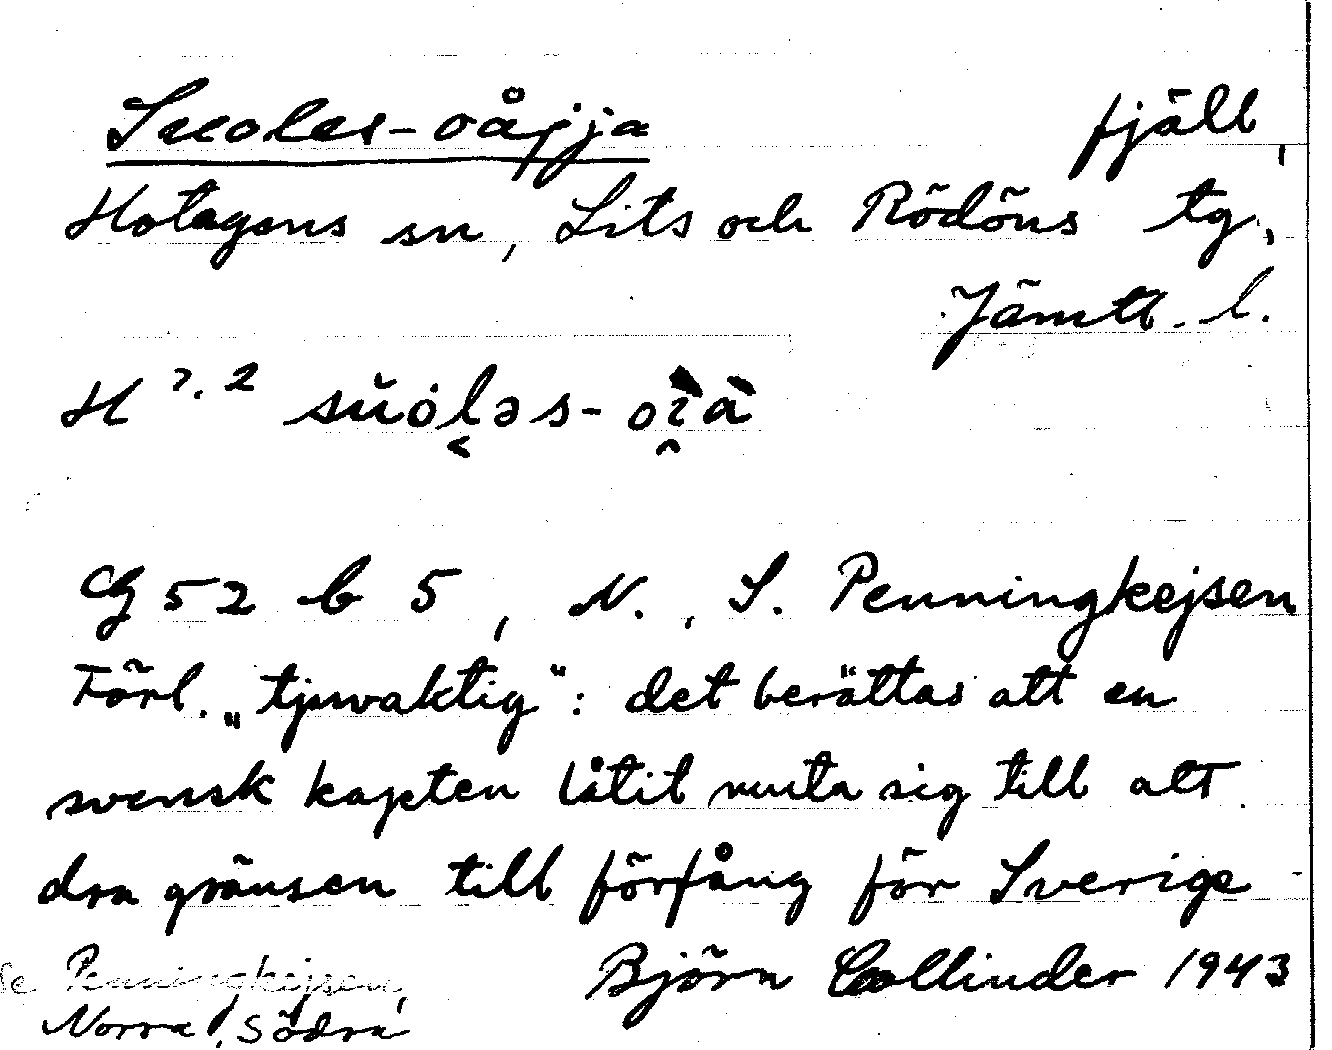 Suoles-oåjja fjäll,
Hotagens sn, Lits och Rödöns tg,
Jämtl. l.
H 7. 2
G 52 b 5, N., S. Penningkejsen
Förl. „tjuvaktig“: det berättas att en
svensk kapten låtit muta sig till att
dra gränsen till förfång för Sverige
Björn Collinder 1943
Se Penningkejsen,
Norra, Södra